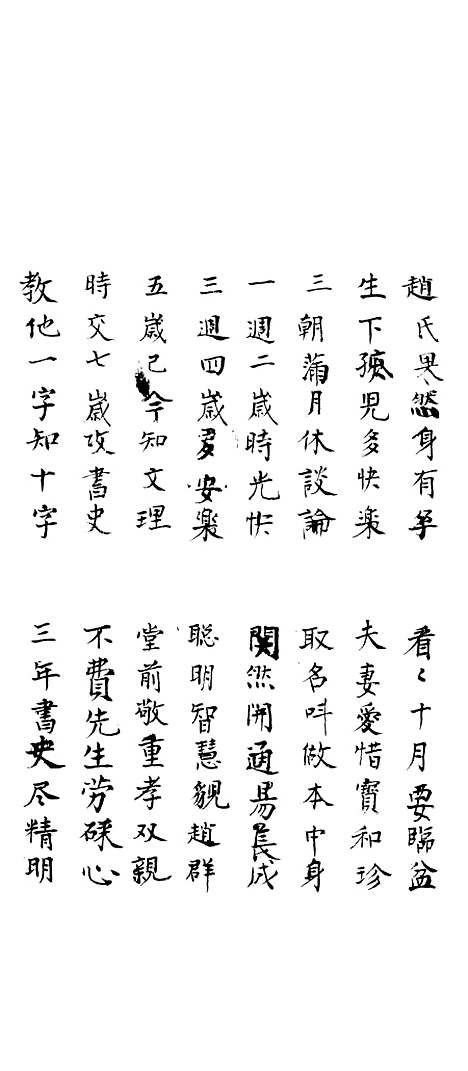 趙氏果然身有孕
看〻十月要臨盆
生下孩児多快楽
夫妻愛惜寳和珍
三朝滿月休談論
取名呌做本中身
一週二歳時光快
関然開通易長成
三週四歳多安樂
聡明智慧貌趙群
五歳已今知文理
堂前敬重孝双親
時交七歳攻書史
不費先生労碌心
教他一字知十字
三年書史尽精明